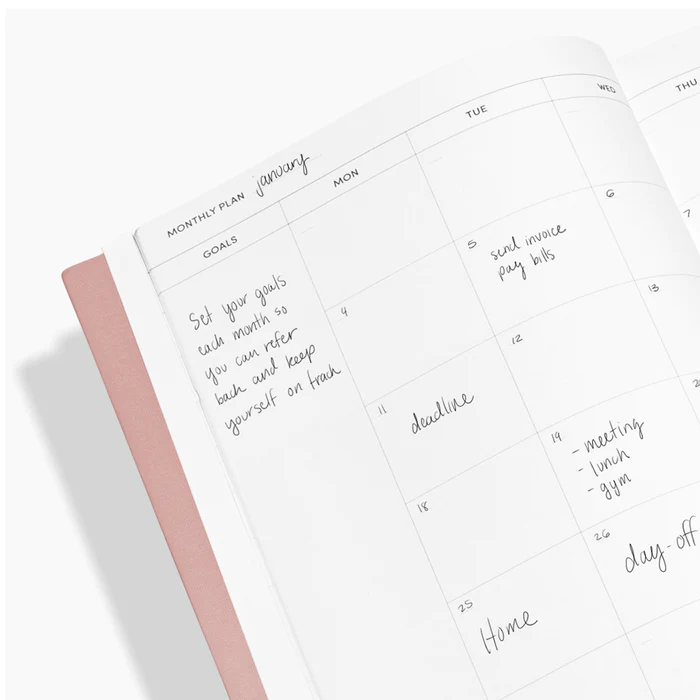 MONTHLY PLAN january
GOALS
MON
TUE
WED
THU
Set your goals
each month so
you can refer
back and keep
yourself on track
4
5
send invoice
pay bills
6
7
11
deadline
12
13
18
19
- meeting
- lunch
- gym
25
Home
26
day-off